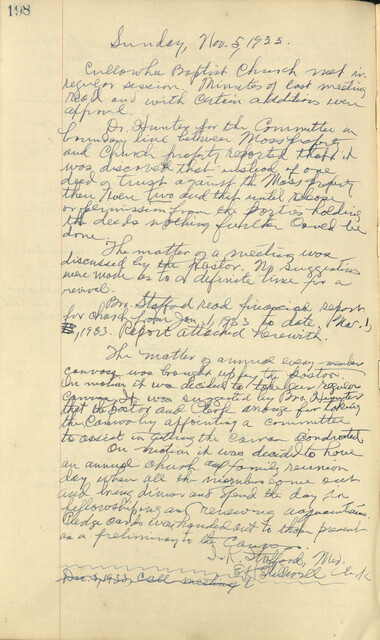 198
Sunday, Nov. 5, 1933.
Cullowhee Baptist Church met in
regular session. Minutes of last meeting
read and with certain additions were
approved.
Dr. Hunter for the Committee on
boundary line between Moss property
and Church property reported that it
was discovered that instead of one
deed of trust against the Moss property
there were two and that until release
or permission from the parties holding
the deeds nothing further could be
done.
The matter of a meeting was
discussed by the Pastor. No suggestions
were made as to a definite time for a
revival.
Bro. Stafford read financial report
for church from Jan. 1, 1933 to date, Mar. 1,
1933. Report attached herewith.
The matter of annual every-member
canvass was brought up by the pastor.
On motion it was decided to take our regular
canvass. It was suggested by Bro. Hunter
that the Pastor and Clerk arrange for taking
the Canvass by appointing a committee
to assist in getting the Canvass conducted.
On motion it was decided to have
an annual church and family reunion
day when all the members come out
and bring dinner and spend the day in
fellowshiping and renewing acquaintances.
Pledge cards were handed out to those present
as a preliminary to the Canvass.
T. K. Stafford, Mod.
Clerk
Dec. 3, 1933, Call meeting